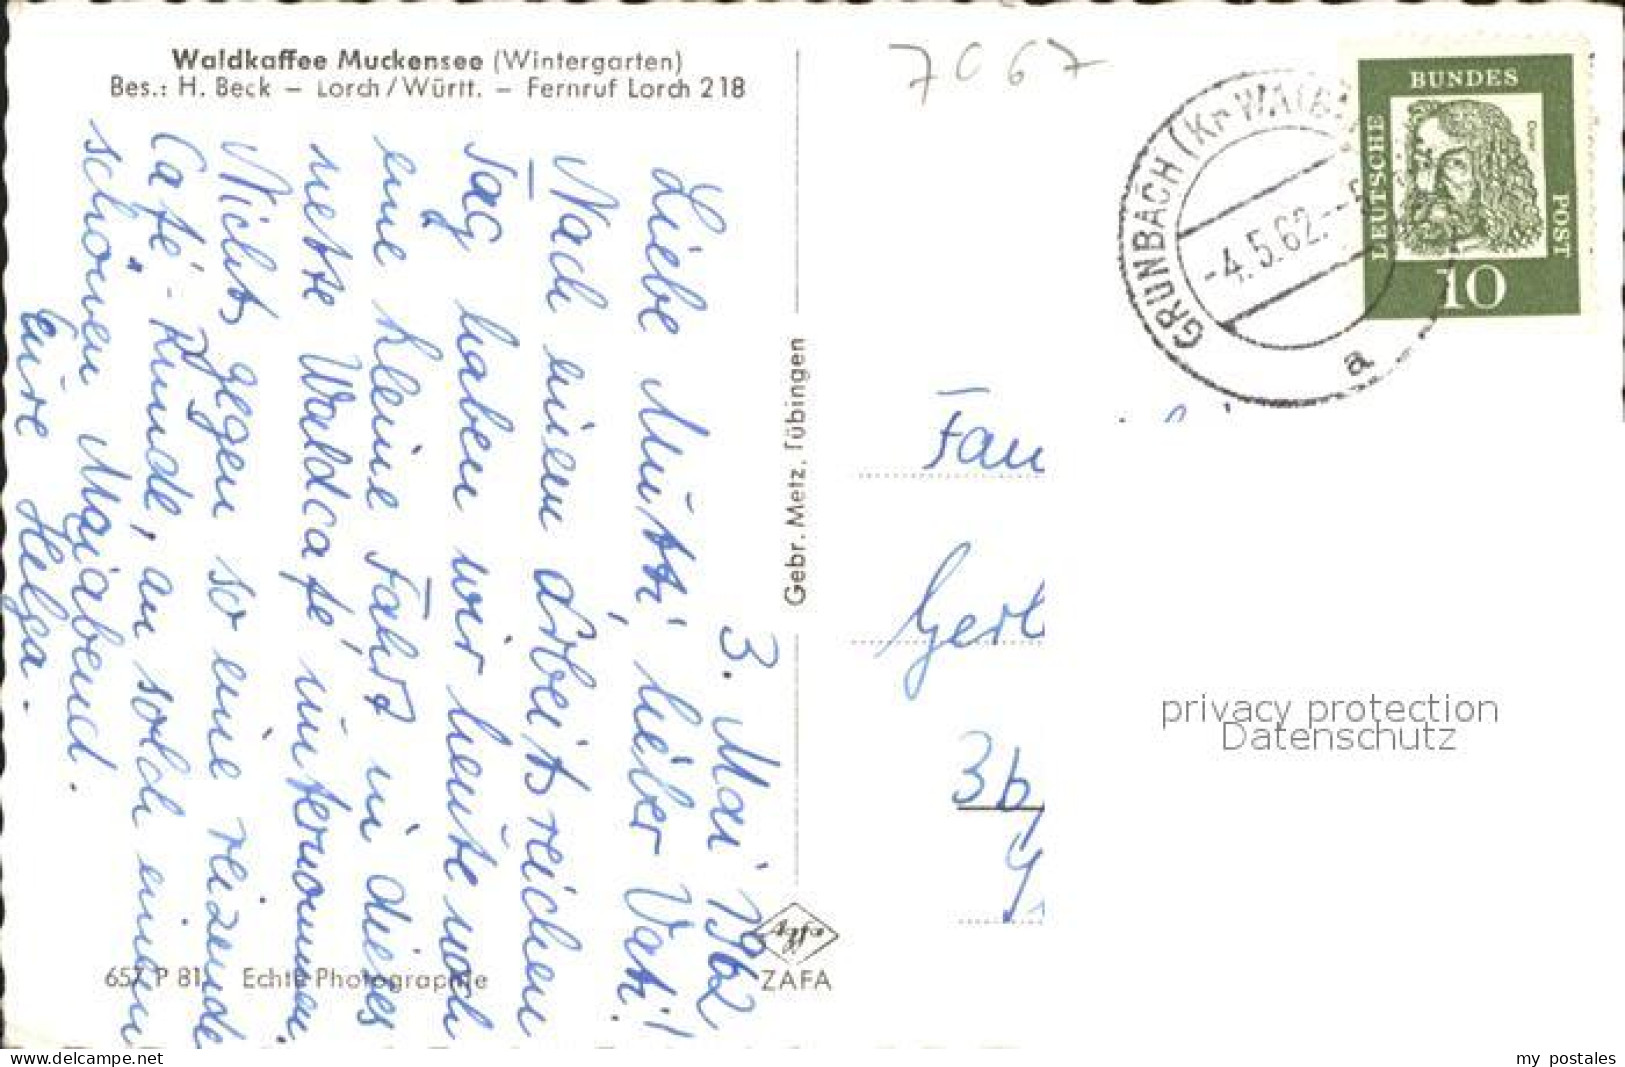 Waldkaffee Muckensee (Wintergarten)
Bes.: H. Beck – Lorch/Württ. – Fernruf Lorch 218
3. Mai 1962
Liebe Mutti, lieber Vati!
Nach einem arbeitsreichen
Tag haben wir heute noch
eine kleine Fahrt in dieses
nette Waldcafé unternommen.
Nichts gegen so eine reizende
Café-Runde, an solch einem
schönen Maiabend.
Eure Helga.
657 P 81 Echte Photographie
Gebr. Metz, Tübingen
ZAFA
7067
GRUNBACH (Kr WAIB
-4.5.62.-
a
DEUTSCHE
BUNDES
POST
Dürer
10
Fam
Gerl
3b
privacy protection
Datenschutz
www.delcampe.net
my postales